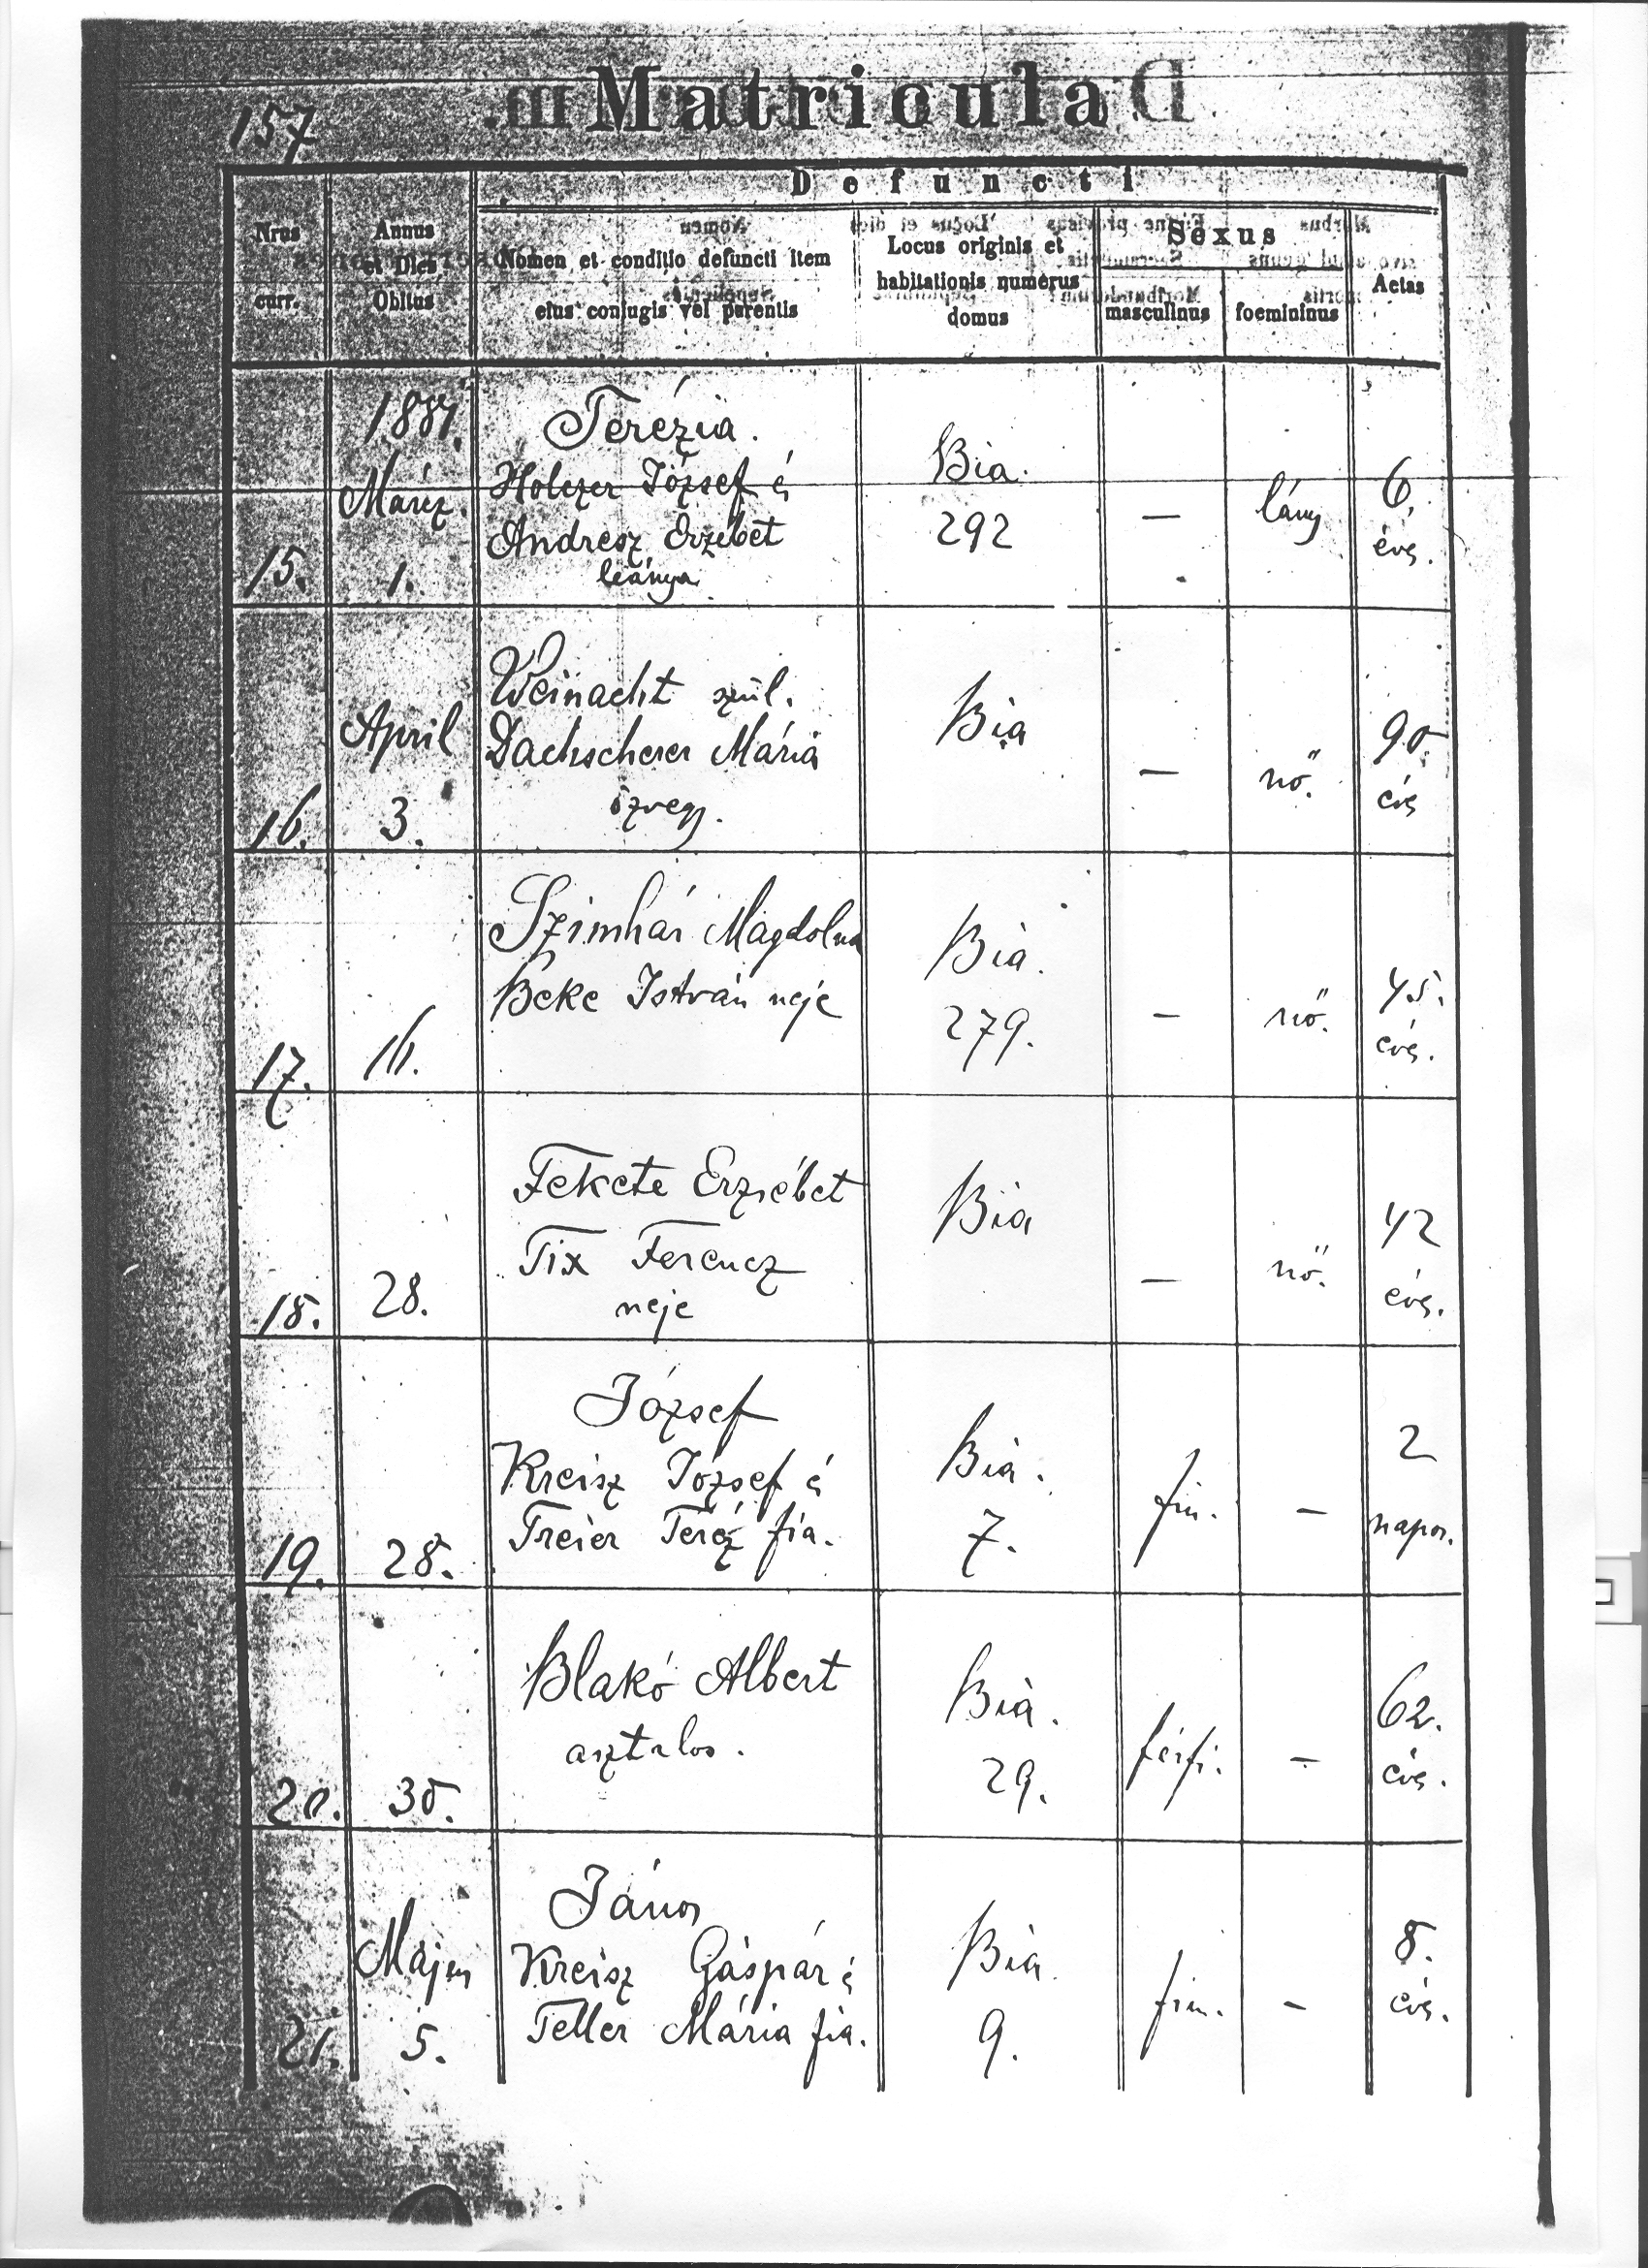 157
Matricula
Defuncti
Nrus curr.
Annus et Dies Obitus
Nomen et conditio defuncti item eius conjugis vel parentis
Locus originis et habitationis numerus domus
Sexus
masculinus
foemininus
Aetas
15.
1887.
Márcz.
1.
Terézia.
Holczer József é
Andresz Erzébet
leánya
Bia.
292
—
lány
6.
éves.
16.
April
3.
Weinacht szül.
Dachscherer Mária
özvegy.
Bia
—
nő.
90.
éves
17.
16.
Szimhár Magdolna
Beke István neje
Bia.
279.
—
nő.
45.
éves.
18.
28.
Fekete Erzsébet
Tix Ferencz
neje
Bia
—
nő.
42
éves.
19.
28.
József
Kreisz József é
Freier Teréz fia.
Bia.
7.
fiu.
—
2
napos.
20.
30.
Blakó Albert
asztalos.
Bia.
29.
férfi.
—
62.
éves.
21.
Május
5.
János
Kreisz Gáspár é
Teller Mária fia.
Bia.
9.
fiu.
—
8.
éves.